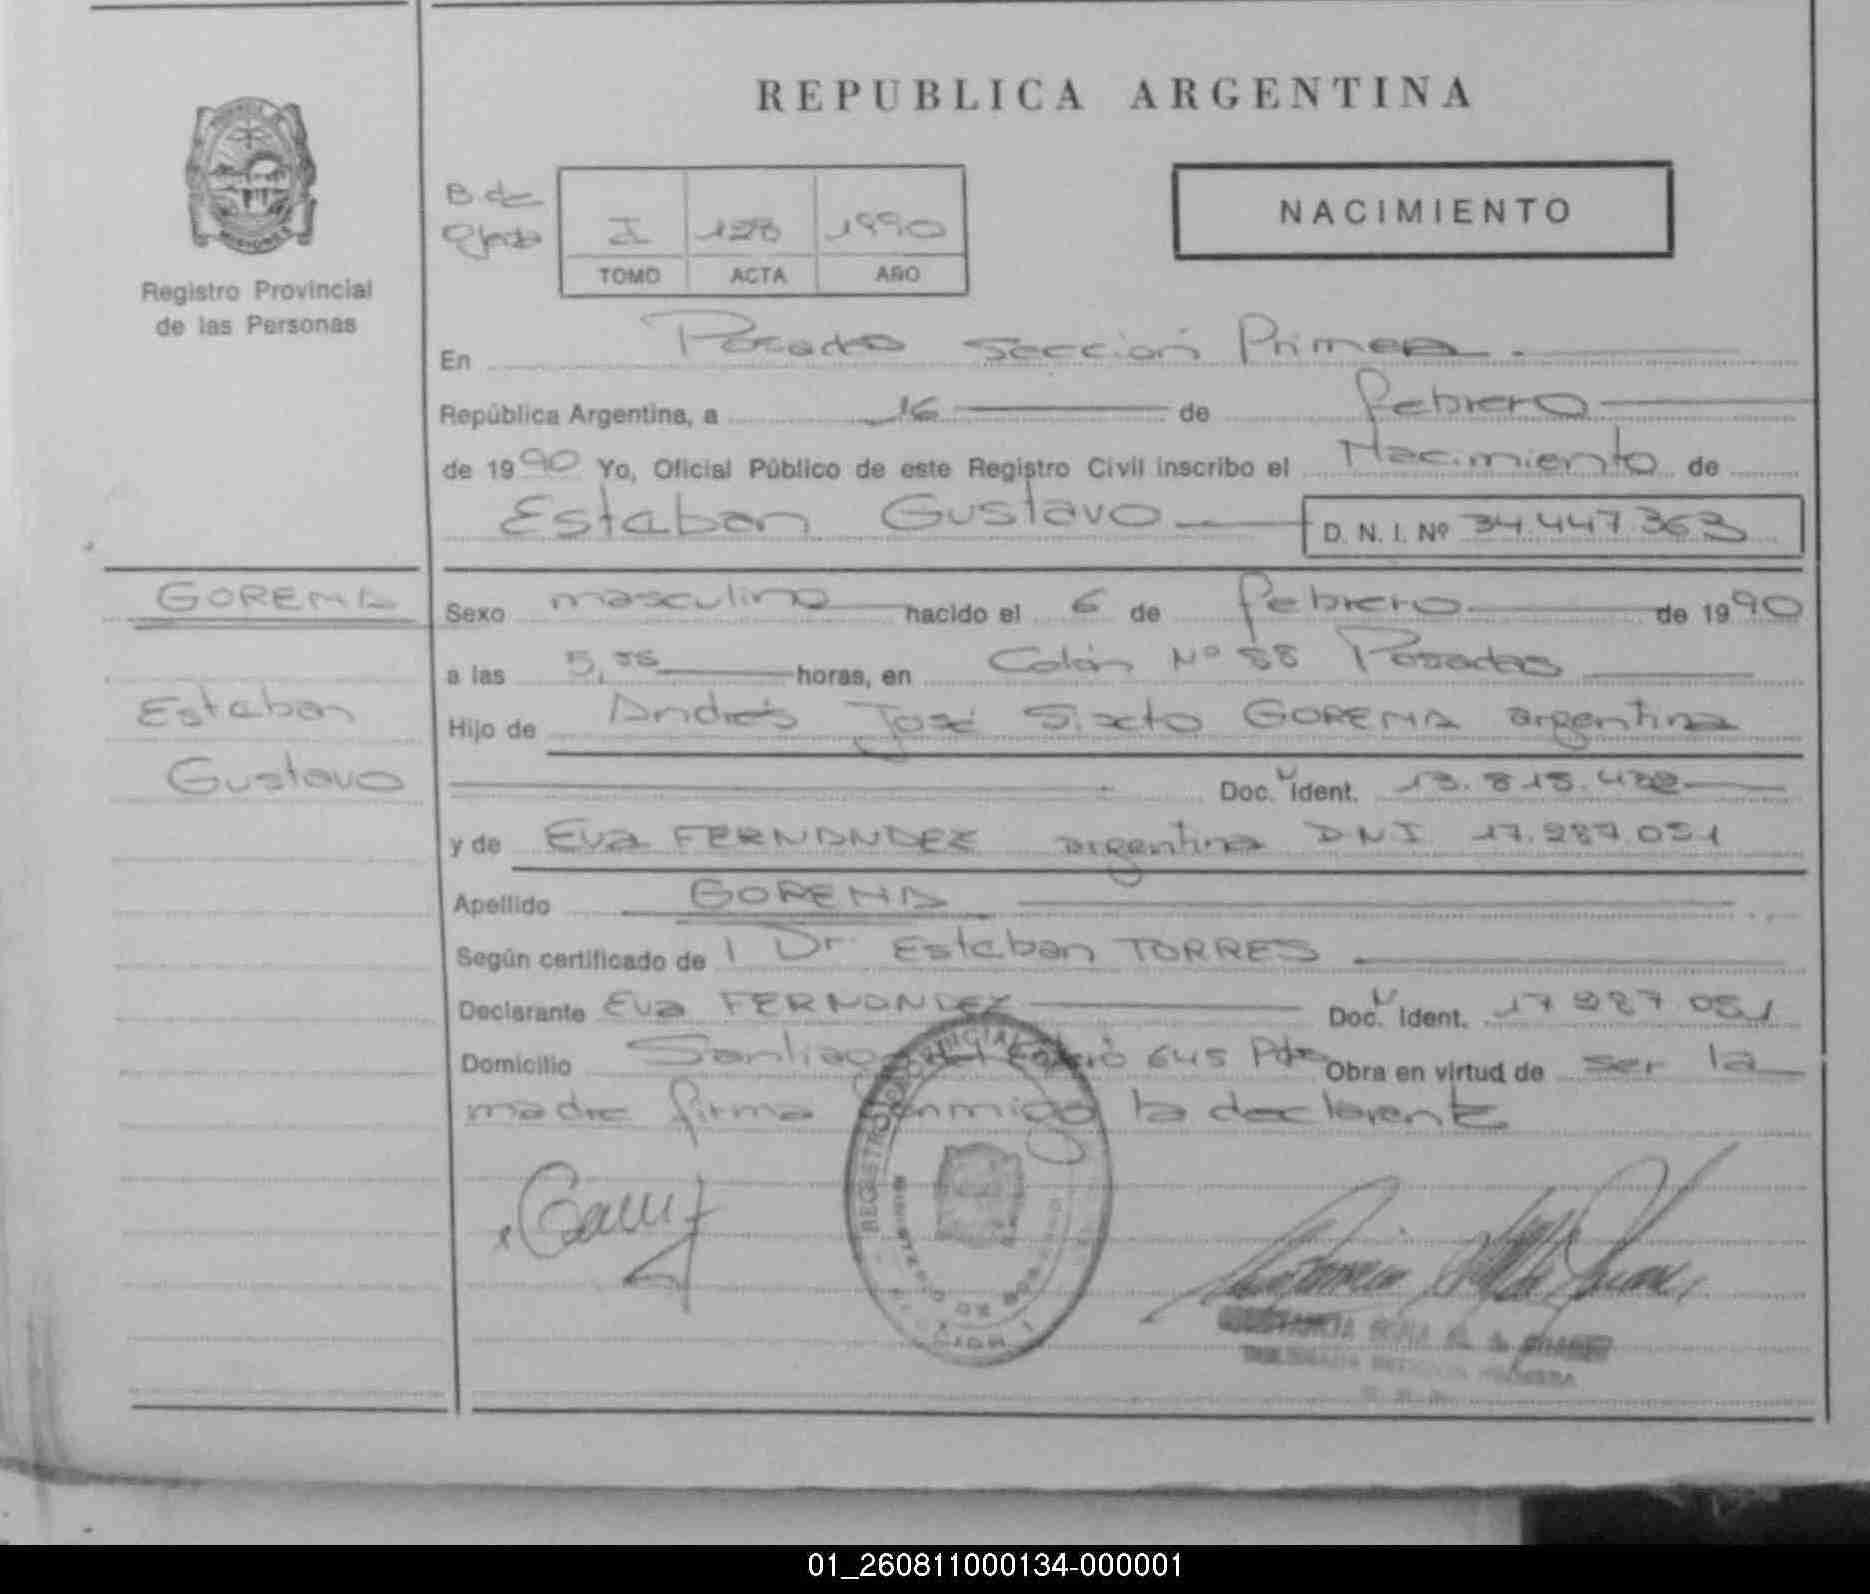 REPUBLICA ARGENTINA
NACIMIENTO
B. de
I 128 1990
TOMO ACTA AÑO
MISIONES
Registro Provincial
de las Personas
En Posadas Sección Primera
República Argentina, a 16 de febrero
de 1990 Yo, Oficial Público de este Registro Civil inscribo el Nacimiento de
Esteban Gustavo D. N. I. Nº 34.447.363
GOREMA
Esteban
Gustavo
Sexo masculino nacido el 6 de febrero de 1990
a las 5,55 horas, en Colón Nº 88 Posadas
Hijo de Andrés José Sixto GOREMA argentina
Doc. Ident. 13.815.
y de Eva FERNANDEZ argentina DNI 17.287.051
Apellido GOREMA
Según certificado de l Dr. Esteban TORRES
Declarante Eva FERNANDEZ Doc. Ident. 17 287 051
Domicilio Santiago del Estero 645 Pdas Obra en virtud de ser la
madre firma conmigo la declarante
REGISTRO PROVINCIAL
01_260811000134-000001